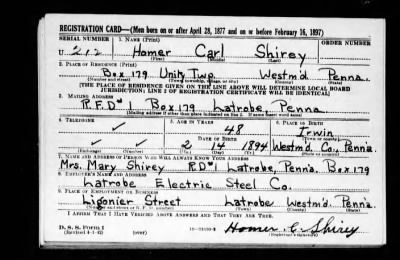 REGISTRATION CARD—(Men born on or after April 28, 1877 and on or before February 16, 1897)
SERIAL NUMBER 1. NAME (Print) ORDER NUMBER
U 212 Homer Carl Shirey
(First) (Middle) (Last)
2. PLACE OF RESIDENCE (Print)
Box 179 Unity Twp. Westm'd Penna.
(Number and street) (Town, township, village, or city) (County) (State)
[THE PLACE OF RESIDENCE GIVEN ON THE LINE ABOVE WILL DETERMINE LOCAL BOARD
JURISDICTION; LINE 2 OF REGISTRATION CERTIFICATE WILL BE IDENTICAL]
3. MAILING ADDRESS
R.F.D#1 Box 179 Latrobe, Penna
[Mailing address if other than place indicated on line 2. If same insert word same]
4. TELEPHONE 5. AGE IN YEARS 6. PLACE OF BIRTH
✓ 48 Irwin
DATE OF BIRTH (Town or county)
✓ ✓ 2 14 1894 Westm'd Co., Penn'a.
(Exchange) (Number) (Mo.) (Day) (Yr.) (State or country)
7. NAME AND ADDRESS OF PERSON WHO WILL ALWAYS KNOW YOUR ADDRESS
Mrs. Mary Shirey RD#1 Latrobe, Penn'a. Box 179
8. EMPLOYER'S NAME AND ADDRESS
Latrobe Electric Steel Co.
9. PLACE OF EMPLOYMENT OR BUSINESS
Ligonier Street Latrobe Westm'd. Penn'a.
(Number and street or R. F. D. number) (Town) (County) (State)
I AFFIRM THAT I HAVE VERIFIED ABOVE ANSWERS AND THAT THEY ARE TRUE.
D. S. S. Form 1
(Revised 4-1-42) (over) Homer C Shirey
(Registrant's signature)